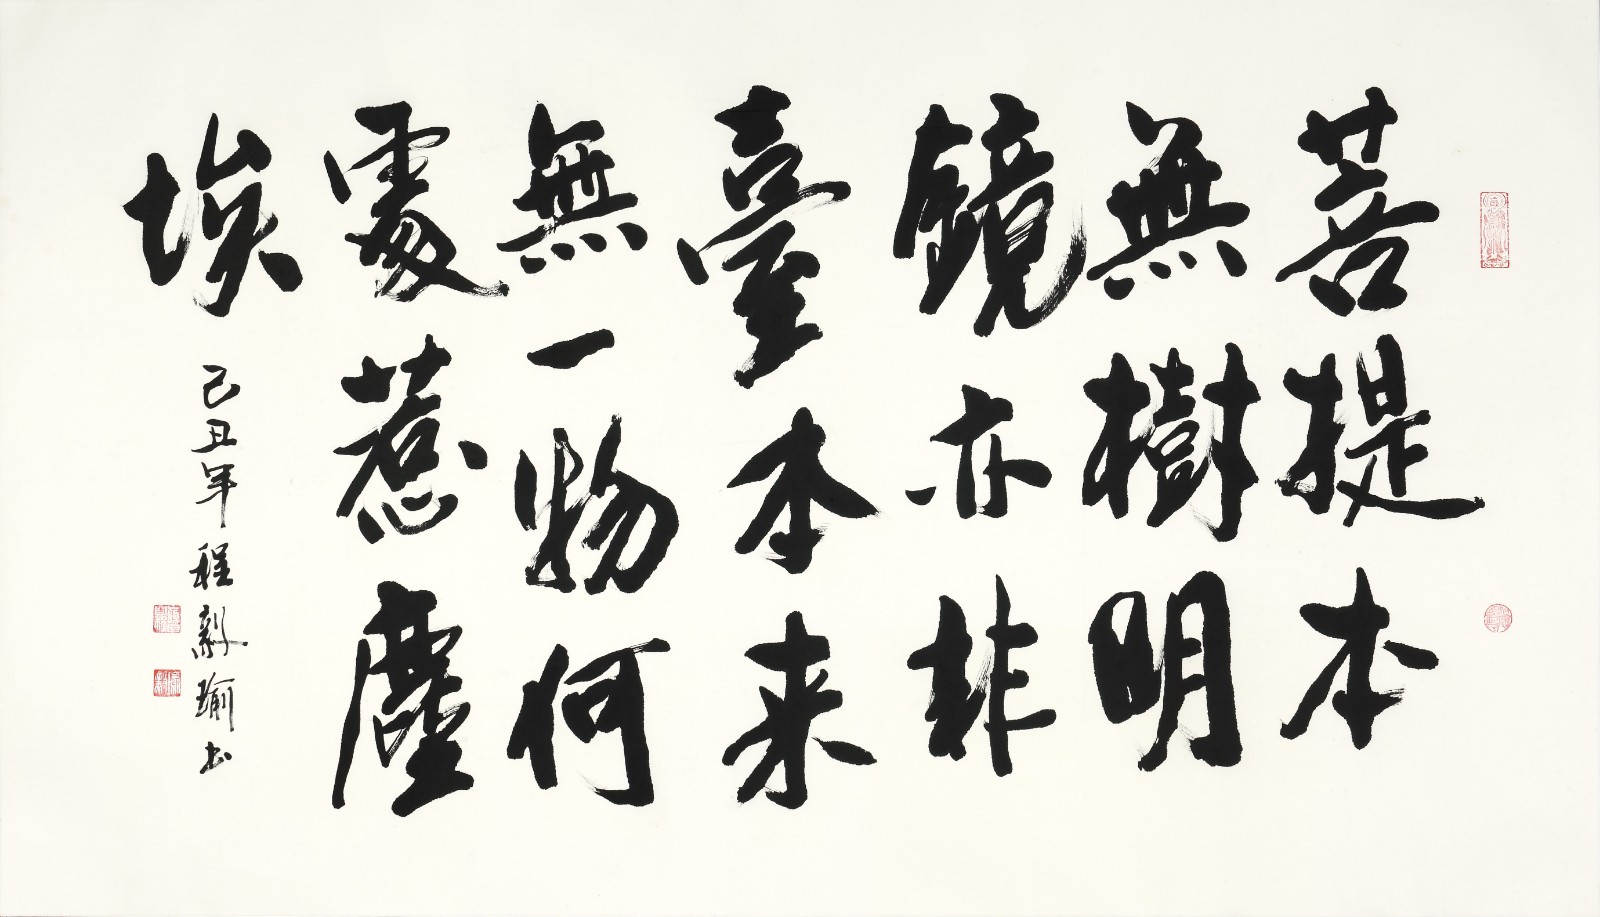 菩提本
無樹明
鏡亦非
臺本来
無一物何
處惹塵
埃
己丑年程毅瑜书